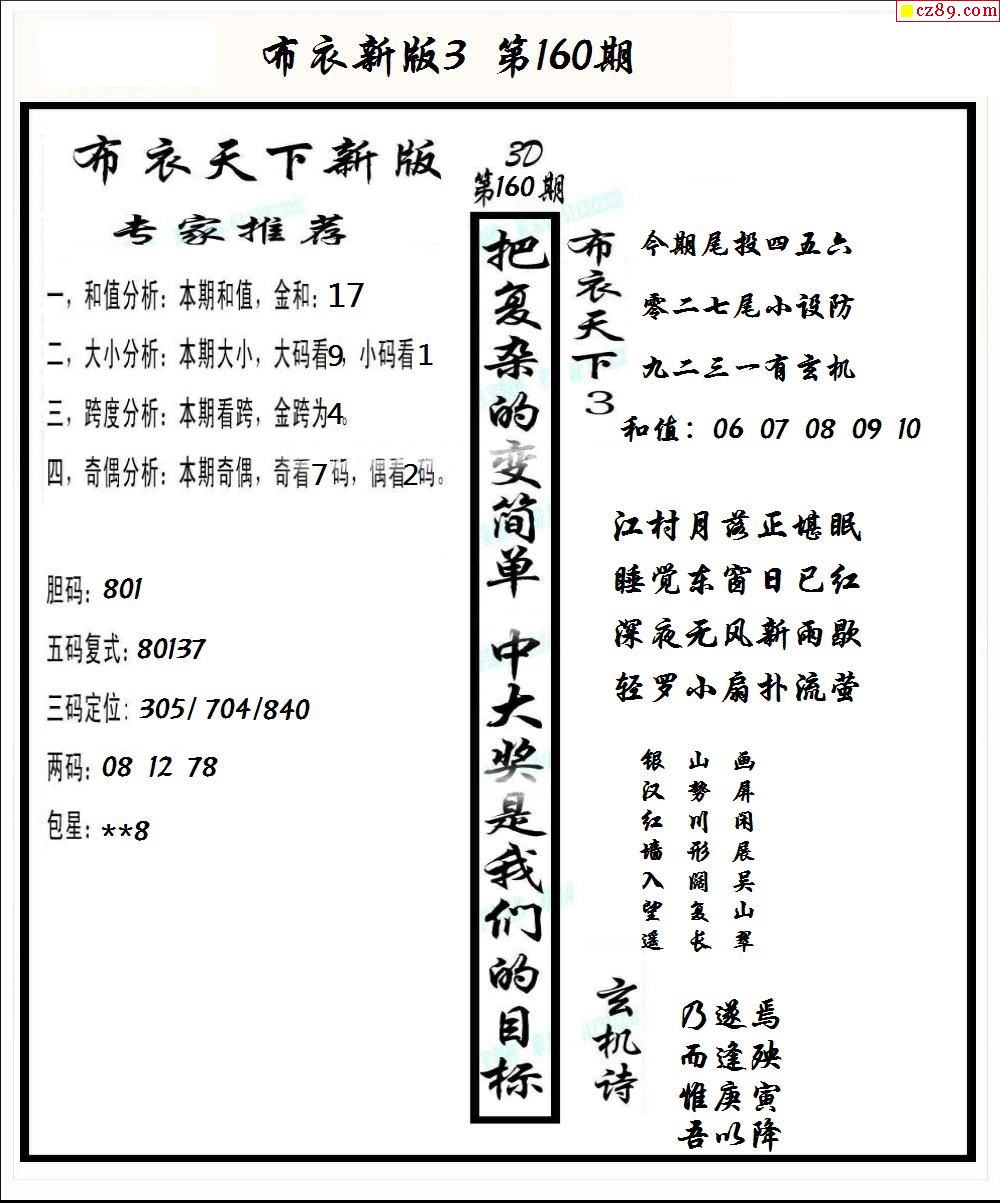 cz89.com
布衣新版3 第160期
布衣天下新版
专家推荐
一，和值分析：本期和值，金和：17
二，大小分析：本期大小，大码看9，小码看1
三，跨度分析：本期看跨，金跨为4。
四，奇偶分析：本期奇偶，奇看7码，偶看2码。
胆码：801
五码复式：80137
三码定位：305/ 704/840
两码：08 12 78
包星：**8
3D
第160期
把复杂的变简单 中大奖是我们的目标
布衣天下3
今期尾投四五六
零二七尾小设防
九二三一有玄机
和值：06 07 08 09 10
江村月落正堪眠
睡觉东窗日已红
深夜无风新雨歇
轻罗小扇扑流萤
银汉红墙入望遥
山势川形阔复长
画屏闲展吴山翠
玄机诗
乃遂焉
而逢殃
惟庚寅
吾以降